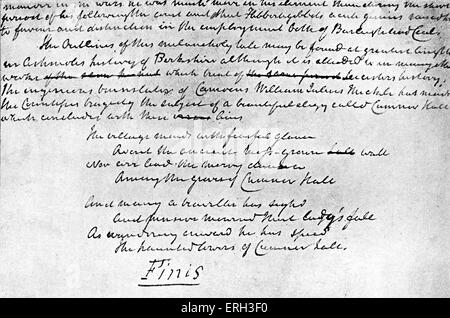 manner in its wars he was much more in his element than during the short
period of his following the court and that Flibbertigibbets acute genius raised him
to favour and distinction in the employment both of Burleigh and Cecil
The Outlines of this melancholy tale may be found at greater length
in Ashmole's history of Berkshire although it is alluded to in many other
works which treat of Leicesters history.
The ingenious translator of Camoens William Julius Mickle has made
the Countess's tragedy the subject of a beautiful elegy called Cumnor Hall
which concludes with these lines
The village maids with fearful glance
Avoid the ancient moss-grown wall
Nor ever lead the merry dance
Among the groves of Cumnor Hall
And many a traveller has sighd
And pensive mourned that lady's fall
As wandering onward he has spied
The haunted towers of Cumnor hall.
Finis
alamy
ERH3F0
www.alamy.com